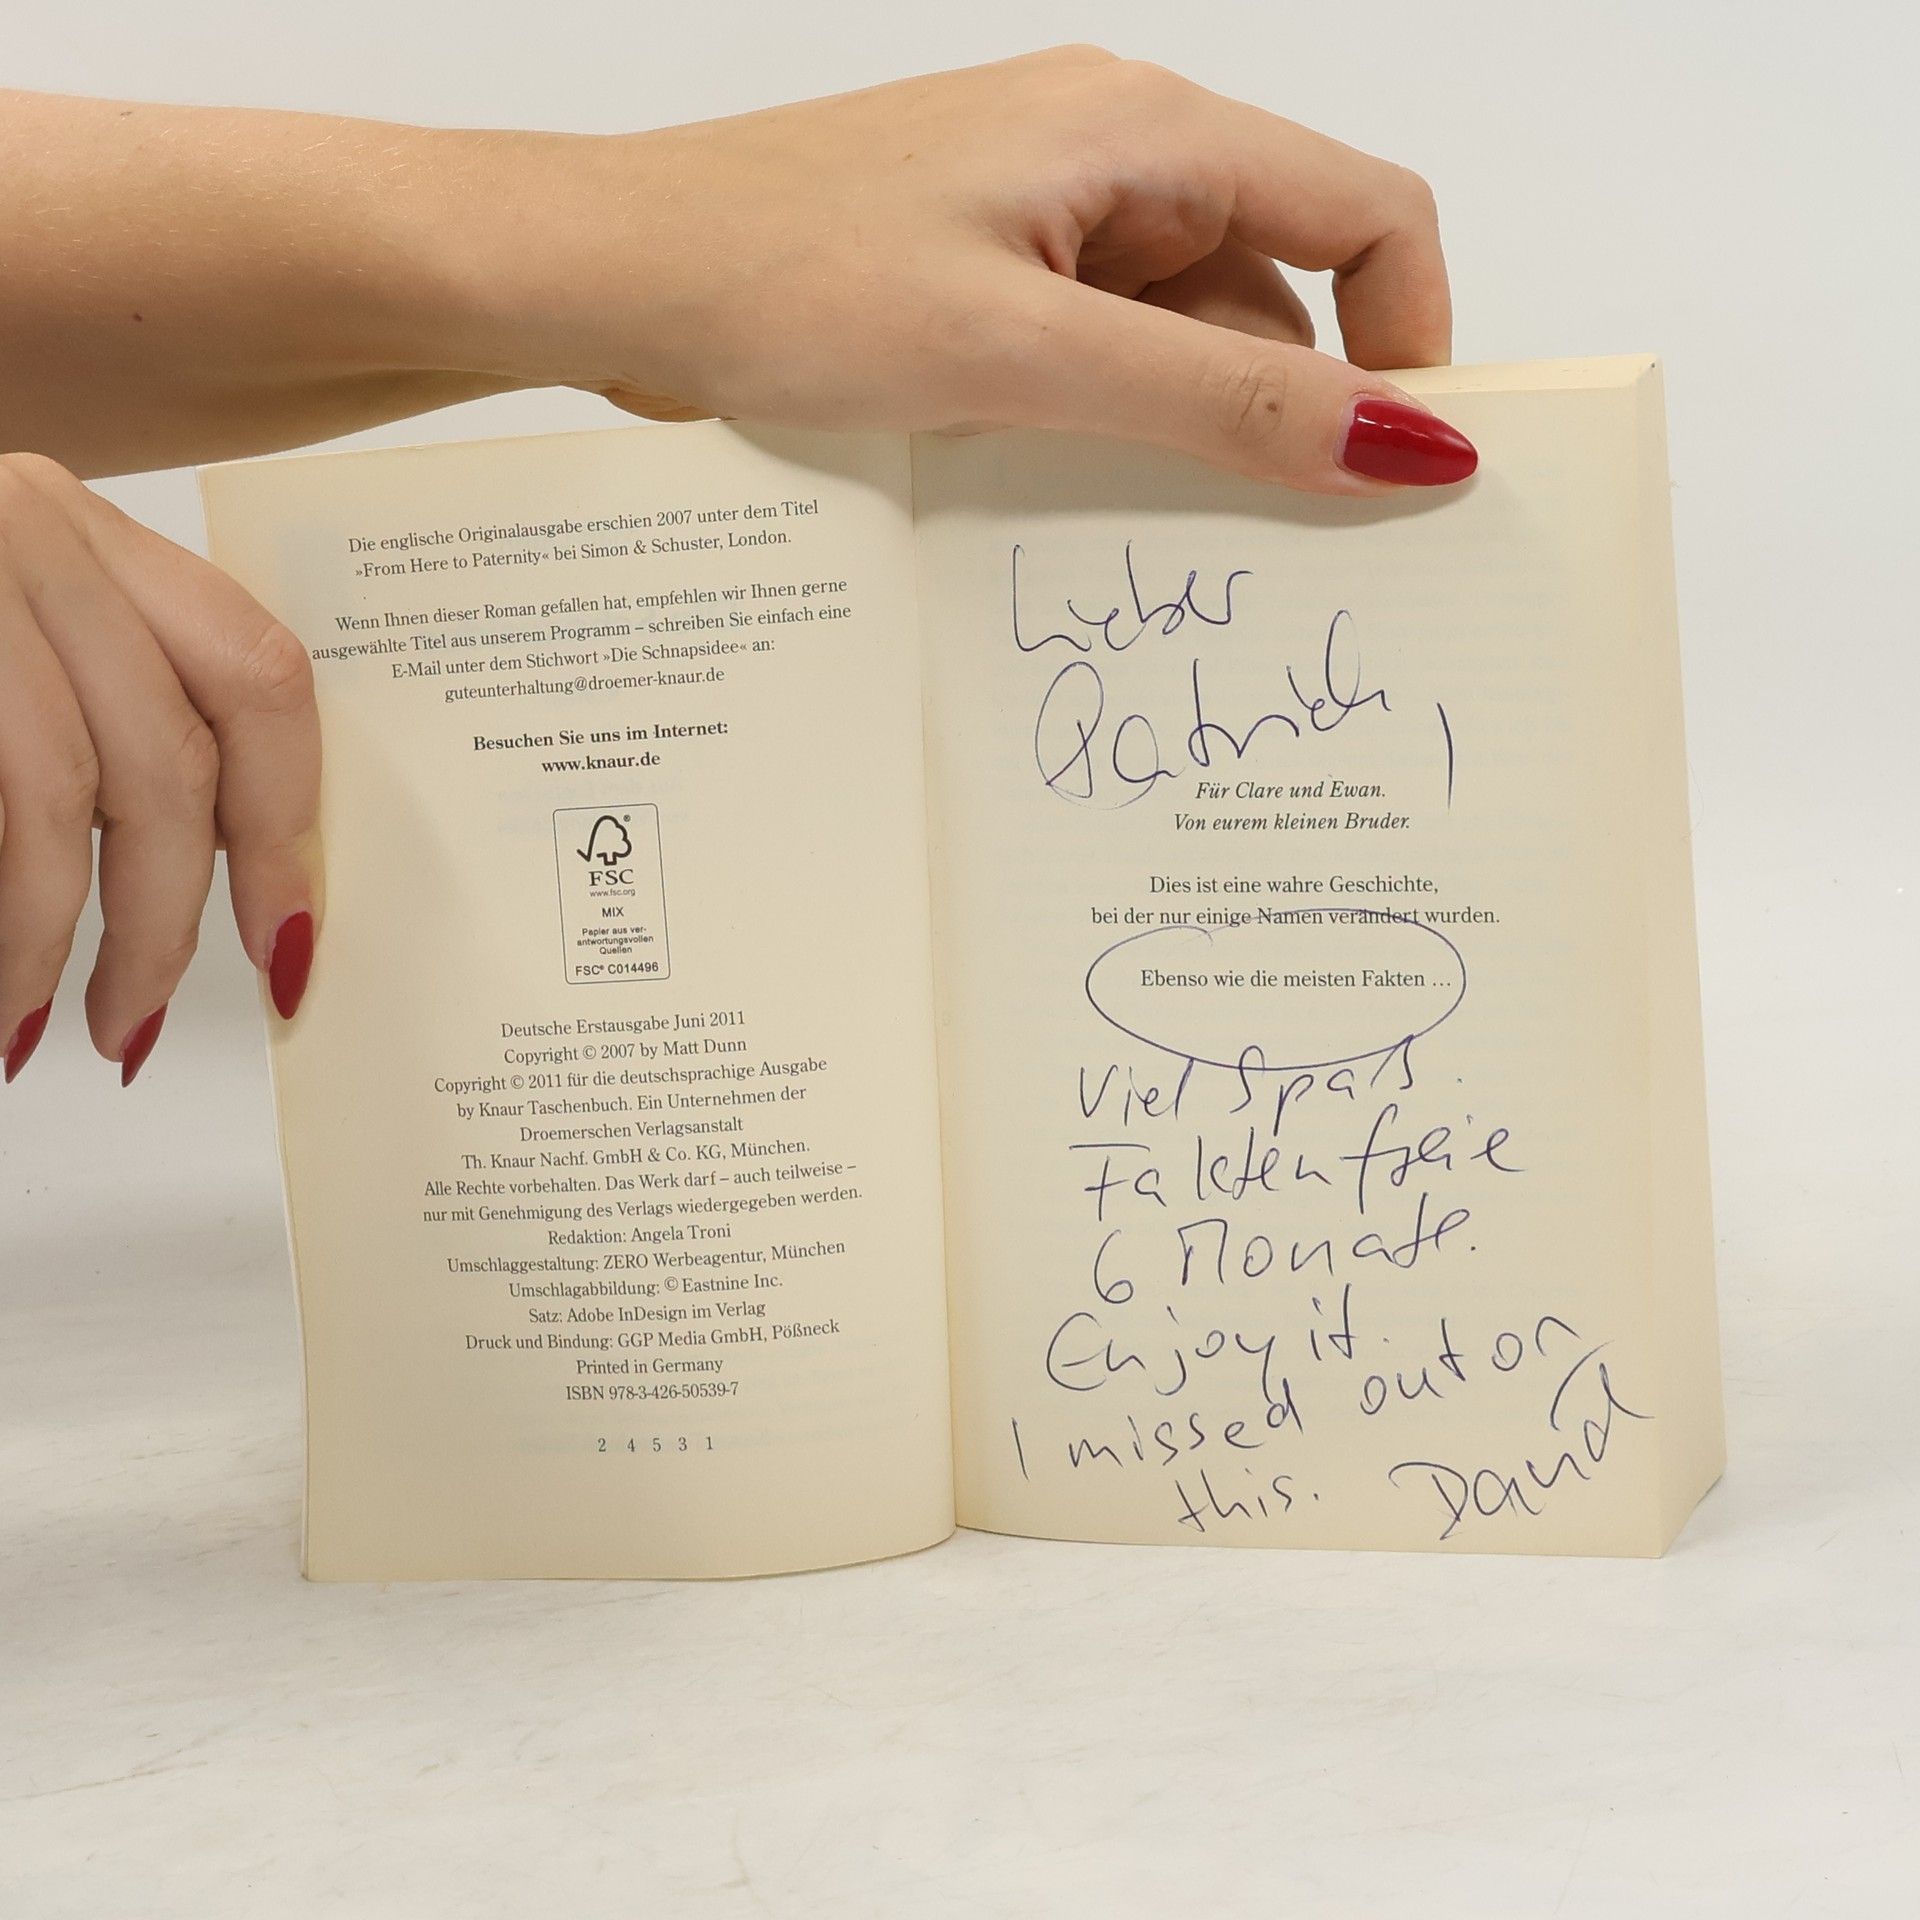 Die englische Originalausgabe erschien 2007 unter dem Titel
»From Here to Paternity« bei Simon & Schuster, London.
Wenn Ihnen dieser Roman gefallen hat, empfehlen wir Ihnen gerne
ausgewählte Titel aus unserem Programm – schreiben Sie einfach eine
E-Mail unter dem Stichwort »Die Schnapsidee« an:
guteunterhaltung@droemer-knaur.de
Besuchen Sie uns im Internet:
www.knaur.de
FSC
www.fsc.org
MIX
Papier aus ver-
antwortungsvollen
Quellen
FSC® C014496
Deutsche Erstausgabe Juni 2011
Copyright © 2007 by Matt Dunn
Copyright © 2011 für die deutschsprachige Ausgabe
by Knaur Taschenbuch. Ein Unternehmen der
Droemerschen Verlagsanstalt
Th. Knaur Nachf. GmbH & Co. KG, München.
Alle Rechte vorbehalten. Das Werk darf – auch teilweise –
nur mit Genehmigung des Verlags wiedergegeben werden.
Redaktion: Angela Troni
Umschlaggestaltung: ZERO Werbeagentur, München
Umschlagabbildung: © Eastnine Inc.
Satz: Adobe InDesign im Verlag
Druck und Bindung: GGP Media GmbH, Pößneck
Printed in Germany
ISBN 978-3-426-50539-7
2 4 5 3 1
Lieber
Patrick,
Für Clare und Ewan.
Von eurem kleinen Bruder.
Dies ist eine wahre Geschichte,
bei der nur einige Namen verändert wurden.
Ebenso wie die meisten Fakten …
Viel Spaß.
Faktenfreie
6 Monate.
Enjoy it.
I missed out on
this. David